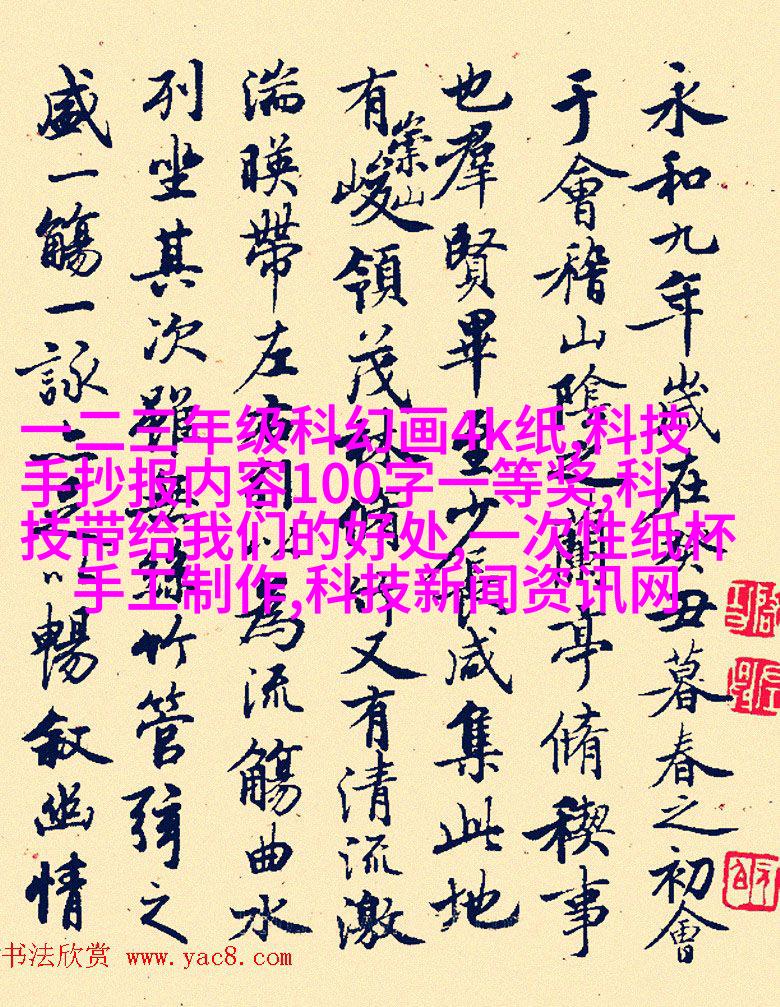 永和九年歲在癸丑暮春之初會
于會稽山陰之蘭亭脩稧事
也羣賢畢至少長咸集此地
有崇山峻領茂林脩竹又有清流激
湍暎帶左右引以為流觴曲水
列坐其次雖無絲竹管弦之
盛一觴一詠亦足以暢叙幽情
一二三年级科幻画4k纸,科技
手抄报内容100字一等奖,科
技带给我们的好处,一次性纸杯
手工制作,科技新闻资讯网
书法欣赏 www.yac8.com